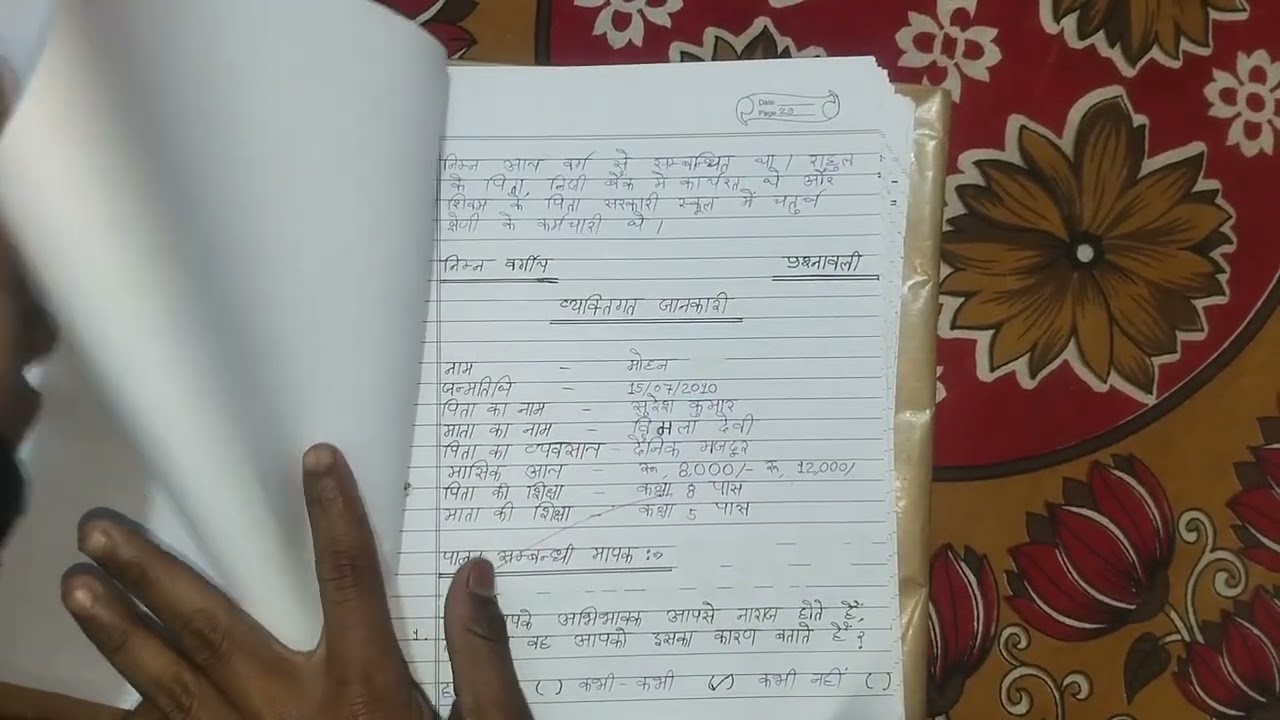 Date
Page 29
निम्न आय वर्ग से सम्बन्धित था। राहुल
के पिता, निजी बैंक मे कार्यरत थे और
शिवम के पिता सरकारी स्कूल में चतुर्थ
श्रेणी के कर्मचारी थे।
निम्न वर्गीय प्रश्नावली
व्यक्तिगत जानकारी
नाम - मोहन
जन्मतिथि - 15/07/2010
पिता का नाम - सुरेश कुमार
माता का नाम - विमला देवी
पिता का व्यवसाय - दैनिक मजदूर
मासिक आय - रू, 8,000/- रू, 12,000/
पिता की शिक्षा - कक्षा 8 पास
माता की शिक्षा - कक्षा 5 पास
सम्बन्धी मापक :->
1. अभिभावक आपसे नाराज होते हैं,
वह आपको इसका कारण बताते हैं?
( ) कभी-कभी (✓) कभी नहीं ( )